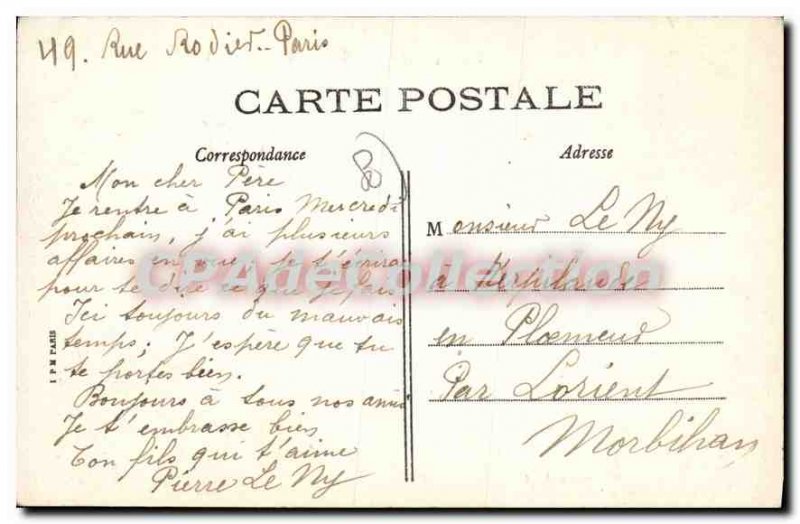 49. Rue Rodier - Paris
CARTE POSTALE
Correspondance
Adresse
80
Mon cher Père
Je rentre à Paris Mercredi
prochain, j'ai plusieurs
affaires en vue; je t'écrirai
pour te dire ce que je fais
Ici toujours du mauvais
temps; J'espère que tu
te portes bien.
Bonjours à tous nos amis
Je t'embrasse bien
Ton fils qui t'aime
Pierre Le Ny
Monsieur Le Ny
à
en Ploemeur
Par Lorient
Morbihan
I P M PARIS
CPAdeCollection